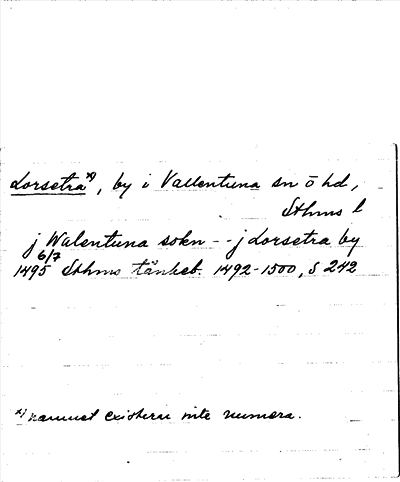 Lorsetra x), by i Vallentuna sn ö hd,
Sthms l
j Walentuna sokn -- j dorsetra by
6/7
1495 Sthms tänkeb. 1492-1500, s 242
x) namnet existerar inte numera.